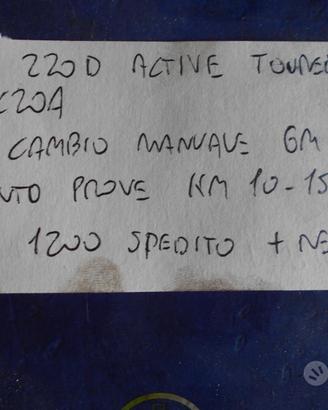 220D ACTIVE TOURE
C20A
CAMBIO MANUALE 6M
NTO PROVE KM 10-15
1200 SPEDITO + NE